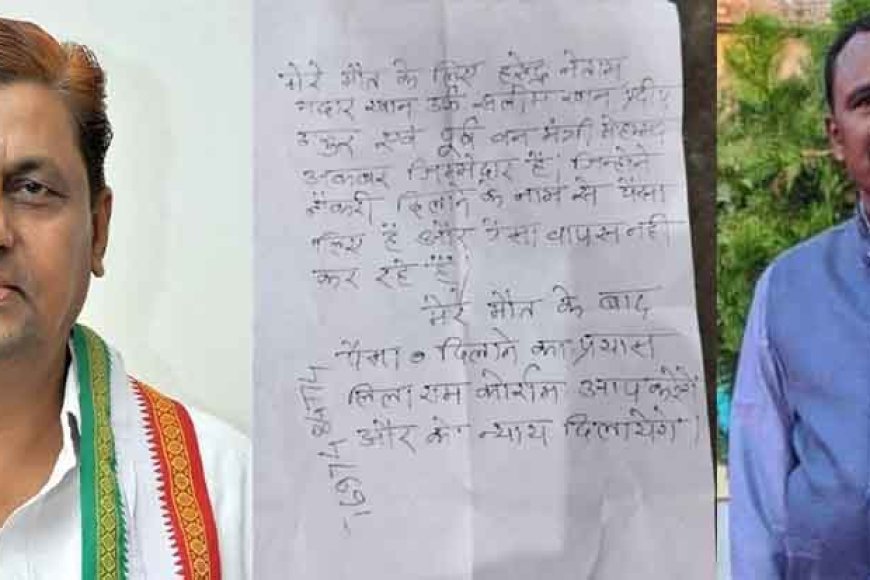 मेरे मौत के लिए हरेन्द्र नेताम
मदार खान उर्फ सलीम खान प्रदीप
ठाकुर एवं पूर्व वन मंत्री मोहम्मद
अकबर जिम्मेदार हैं। जिन्होंने
नौकरी दिलाने के नाम से पैसा
लिए है और पैसा वापस नहीं
कर रहे हैं।
मेरे मौत के बाद
पैसा दिलाने का प्रयास
लिलाराम कोर्राम आप करेंगे
और के न्याय दिलायेंगे।